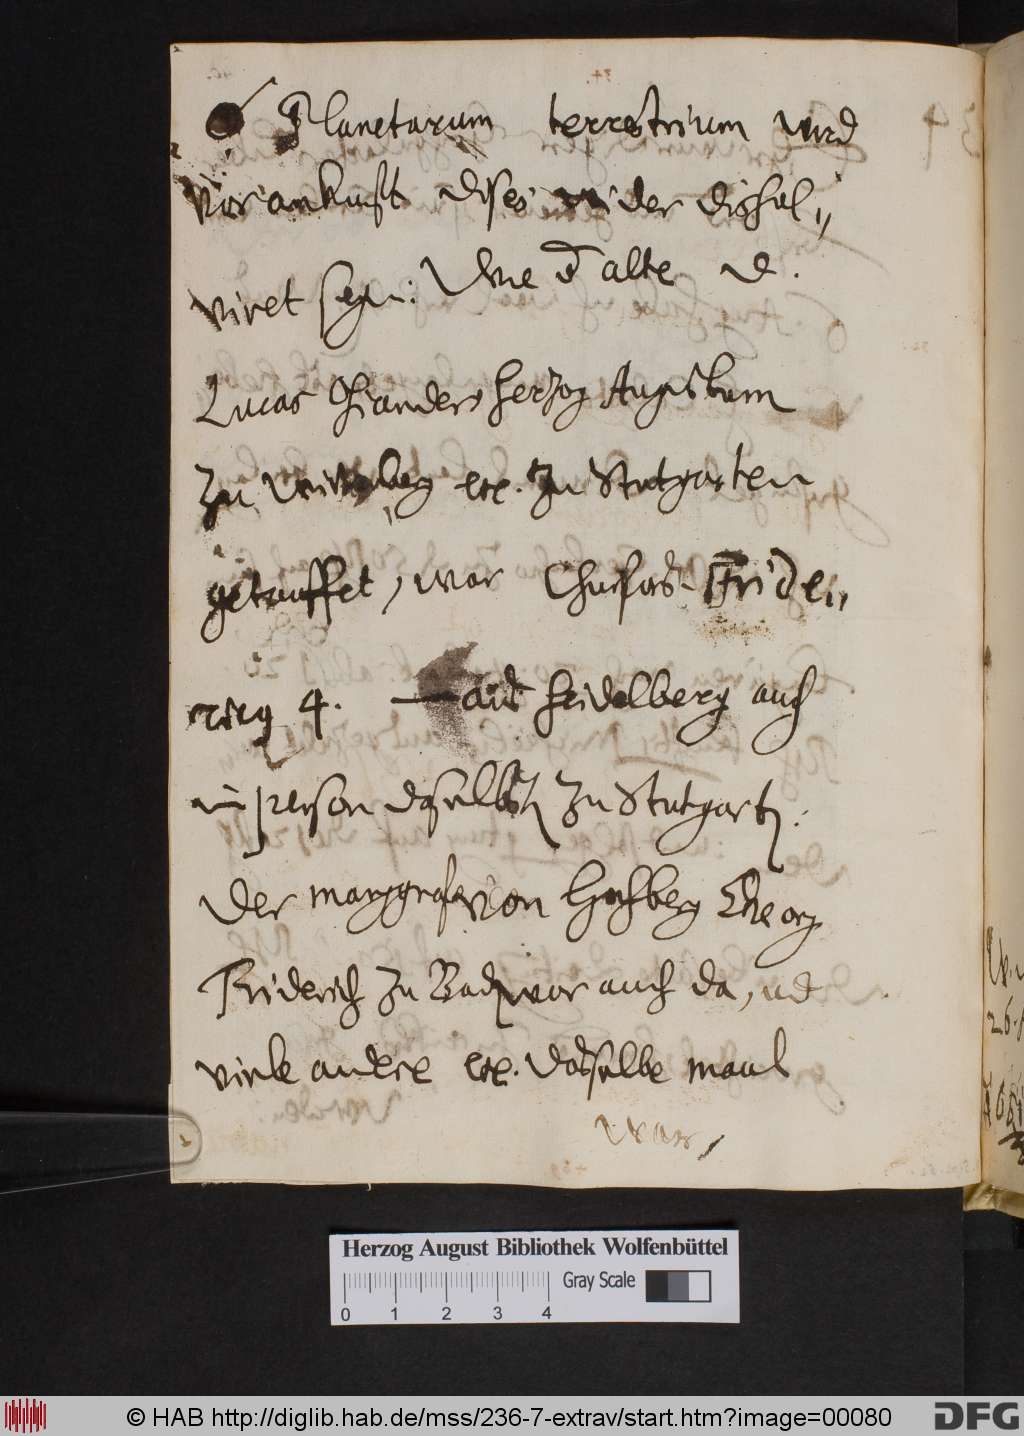 Planetarum terrestrium wird
vor ankunft dises wider dissol„
viret seyn: Wie d alte D.
Lucas Osiander Herzog Augustum
zu Wirtenberg etc. zu Stutgarten
getauffet, war Churfürst Friden„
rich 4. aus Heidelberg auch
in person daselbst zu Stutgart:
Der marggraf von Hochberg Georg
Friderich zu Baden war auch da, und
viele andere etc. dasselbe maal
war,
Herzog August Bibliothek Wolfenbüttel
Gray Scale
0 1 2 3 4
© HAB http://diglib.hab.de/mss/236-7-extrav/start.htm?image=00080
DFG